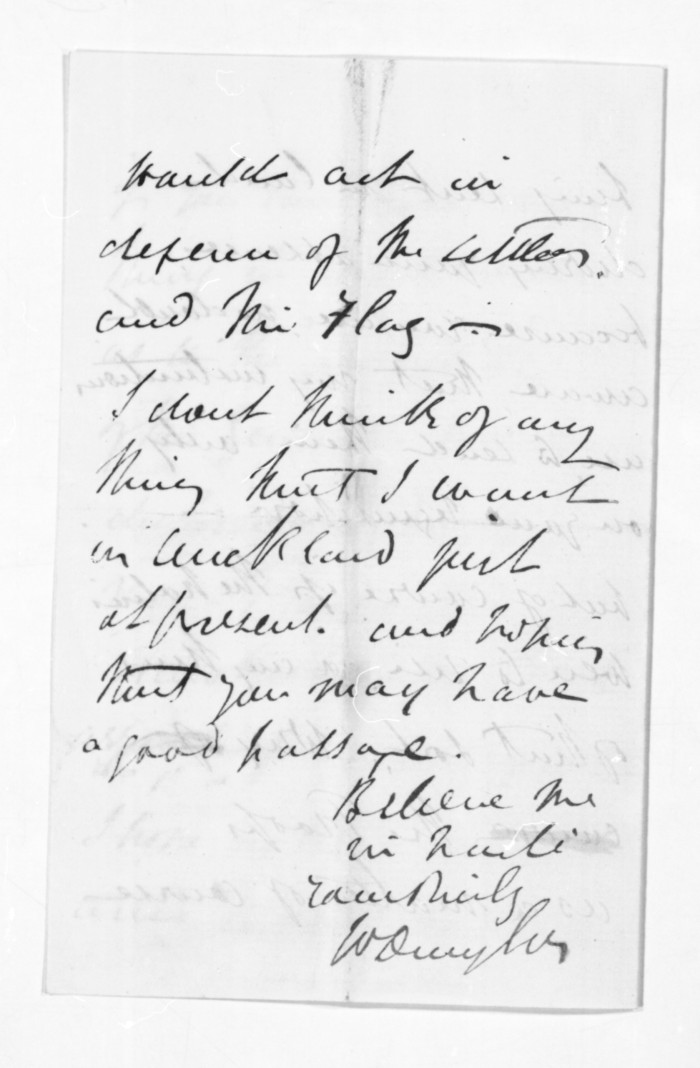 would act in
defence of the settlers.
and the Flag —
I dont think of any
thing that I want
in Auckland just
at present. and hoping
that you may have
a good passage.
Believe me
in haste
Yours truly